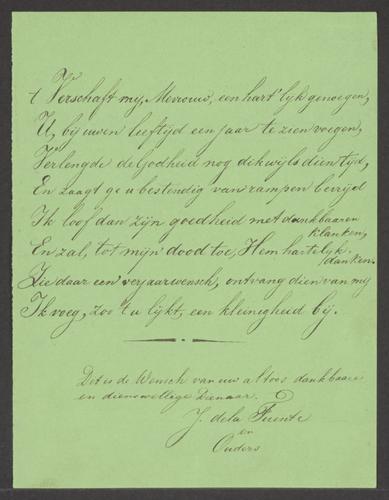 't Verschaft my, Mevrouw, een hart'lyk genoegen,
U, by uwen leeftyd een jaar te zien voegen,
Verlengde de Godheid nog dikwyls dien tyd,
En zaagt ge u bestendig van rampen bevryd
Ik loof dan zyn goedheid met dankbaaren
klanken,
En zal, tot myn dood toe, Hem hartelyk
danken.
Zie daar een verjaarwensch, ontvang dien van my
Ik voeg, zoo 't u lykt, een kleinigheid by.
Dit is de Wensch van uw altoos dankbaare
en dienswillige Dienaar.
J. de la Fuente
en
Ouders